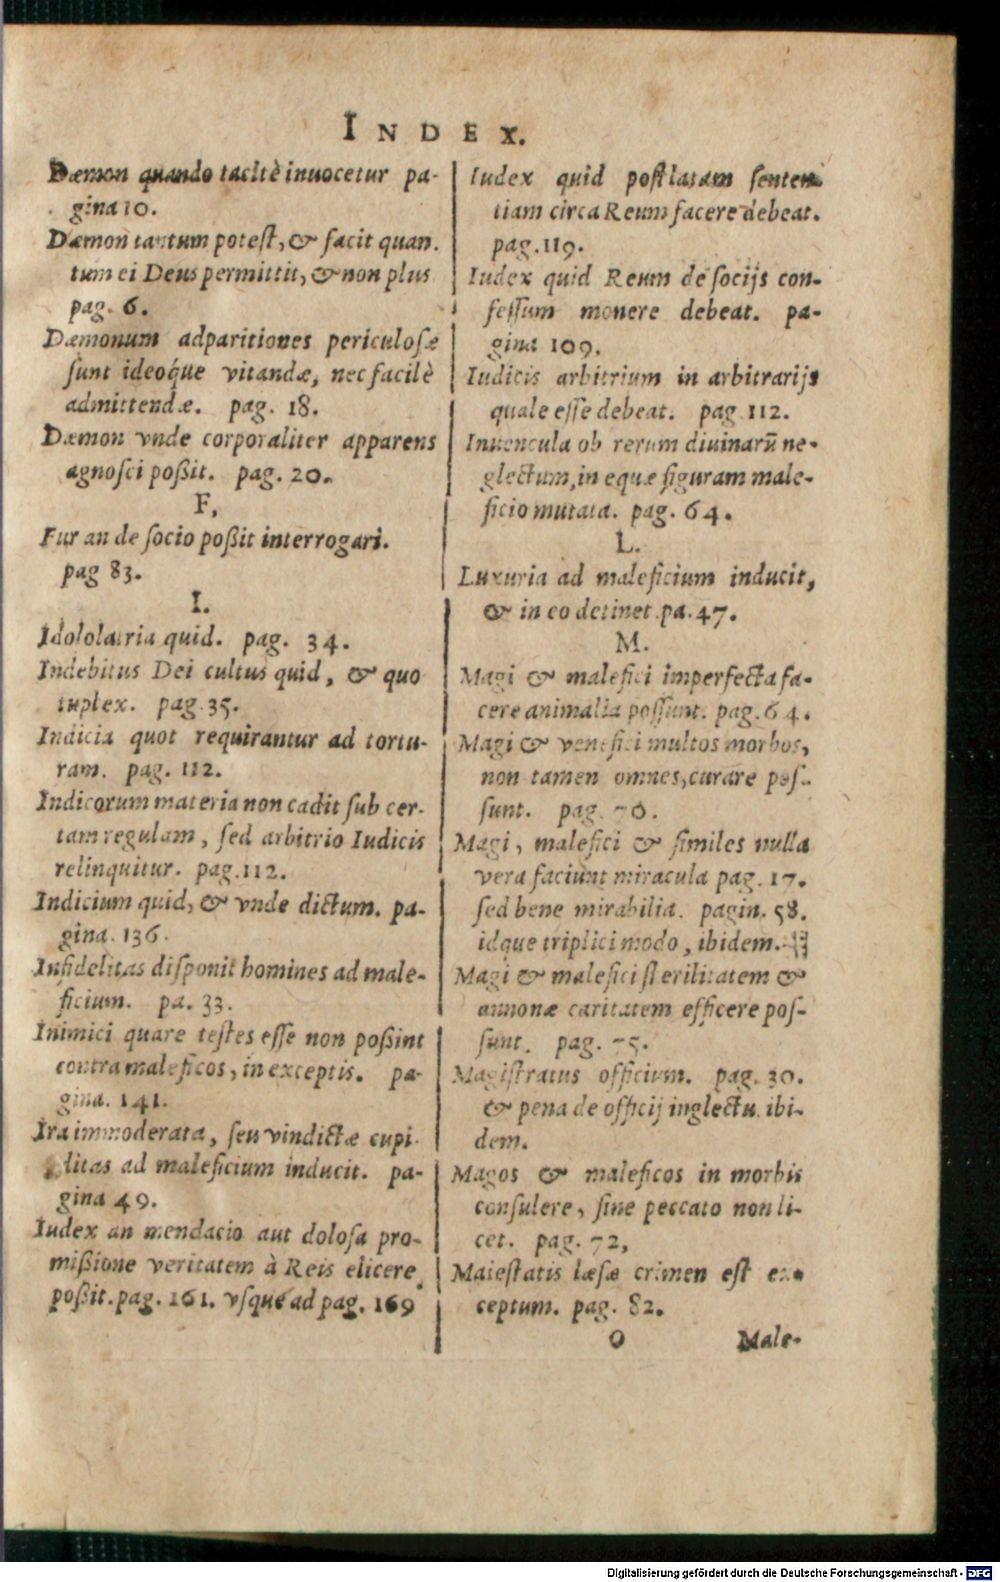 INDEX.
Dæmon quando tacitè inuocetur pa-
gina 10.
Dæmon tantum potest, & facit quan.
tum ei Deus permittit, & non plus
pag. 6.
Dæmonum adparitiones periculosæ
sunt ideoq́ue vitandæ, nec facilè
admittendæ. pag. 18.
Dæmon vnde corporaliter apparens
agnosci poßit. pag. 20.
F.
Fur an de socio poßit interrogari.
pag 83.
I.
Idololatria quid. pag. 34.
Indebitus Dei cultus quid, & quo
tuplex. pag. 35.
Indicia quot requirantur ad tortu-
ram. pag. 112.
Indicorum materia non cadit sub cer-
tam regulam, sed arbitrio Iudicis
relinquitur. pag. 112.
Indicium quid, & vnde dictum. pa-
gina. 136.
Infidelitas disponit homines ad male-
ficium. pa. 33.
Inimici quare testes esse non poßint
contra maleficos, in exceptis. pa-
gina. 141.
Ira immoderata, seu vindictæ cupi-
ditas ad maleficium inducit. pa-
gina 49.
Iudex an mendacio aut dolosa pro-
mißione veritatem à Reis elicere
poßit. pag. 161. vsque ad pag. 169
Iudex quid post latam senten
tiam circa Reum facere debeat.
pag. 119.
Iudex quid Reum de socijs con-
fessum monere debeat. pa-
gina 109.
Iudicis arbitrium in arbitrarijs
quale esse debeat. pag 112.
Inuencula ob rerum diuinarū ne-
glectum, in equæ figuram male-
ficio mutata. pag. 64.
L.
Luxuria ad maleficium inducit,
& in eo detinet. pa. 47.
M.
Magi & malefici imperfecta fa-
cere animalia possunt. pag. 64.
Magi & venefici multos morbos,
non tamen omnes, curare pos-
sunt. pag. 70.
Magi, malefici & similes nulla
vera faciunt miracula pag. 17.
sed bene mirabilia. pagin. 58.
idque triplici modo, ibidem.
Magi & malefici sterilitatem &
annonæ caritatem efficere pos-
sunt. pag. 75.
Magistratus officium. pag. 30.
& pena de officij inglectu ibi-
dem.
Magos & maleficos in morbis
consulere, sine peccato non li-
cet. pag. 72,
Maiestatis læsæ crimen est ex-
ceptum. pag. 82.
O Male-
Digitalisierung gefördert durch die Deutsche Forschungsgemeinschaft - DFG